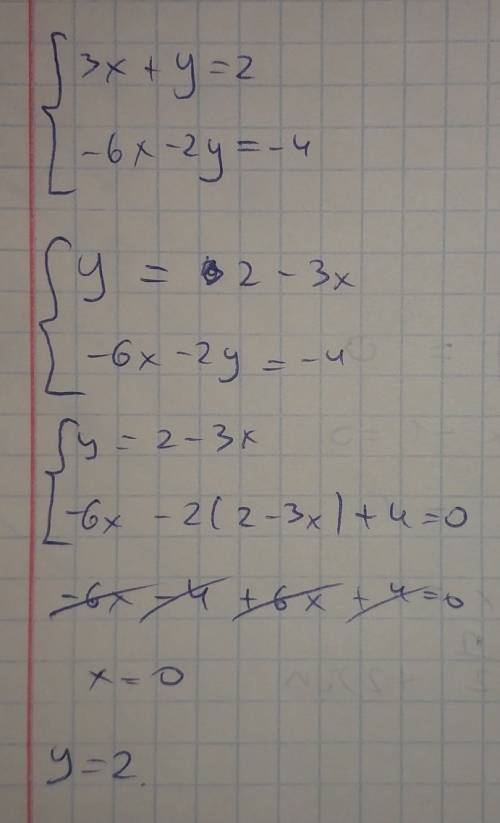 3x + y = 2
-6x - 2y = -4
y = 2 - 3x
-6x - 2y = -4
y = 2 - 3x
-6x - 2(2 - 3x) + 4 = 0
-6x - 4 + 6x + 4 = 0
x = 0
y = 2.